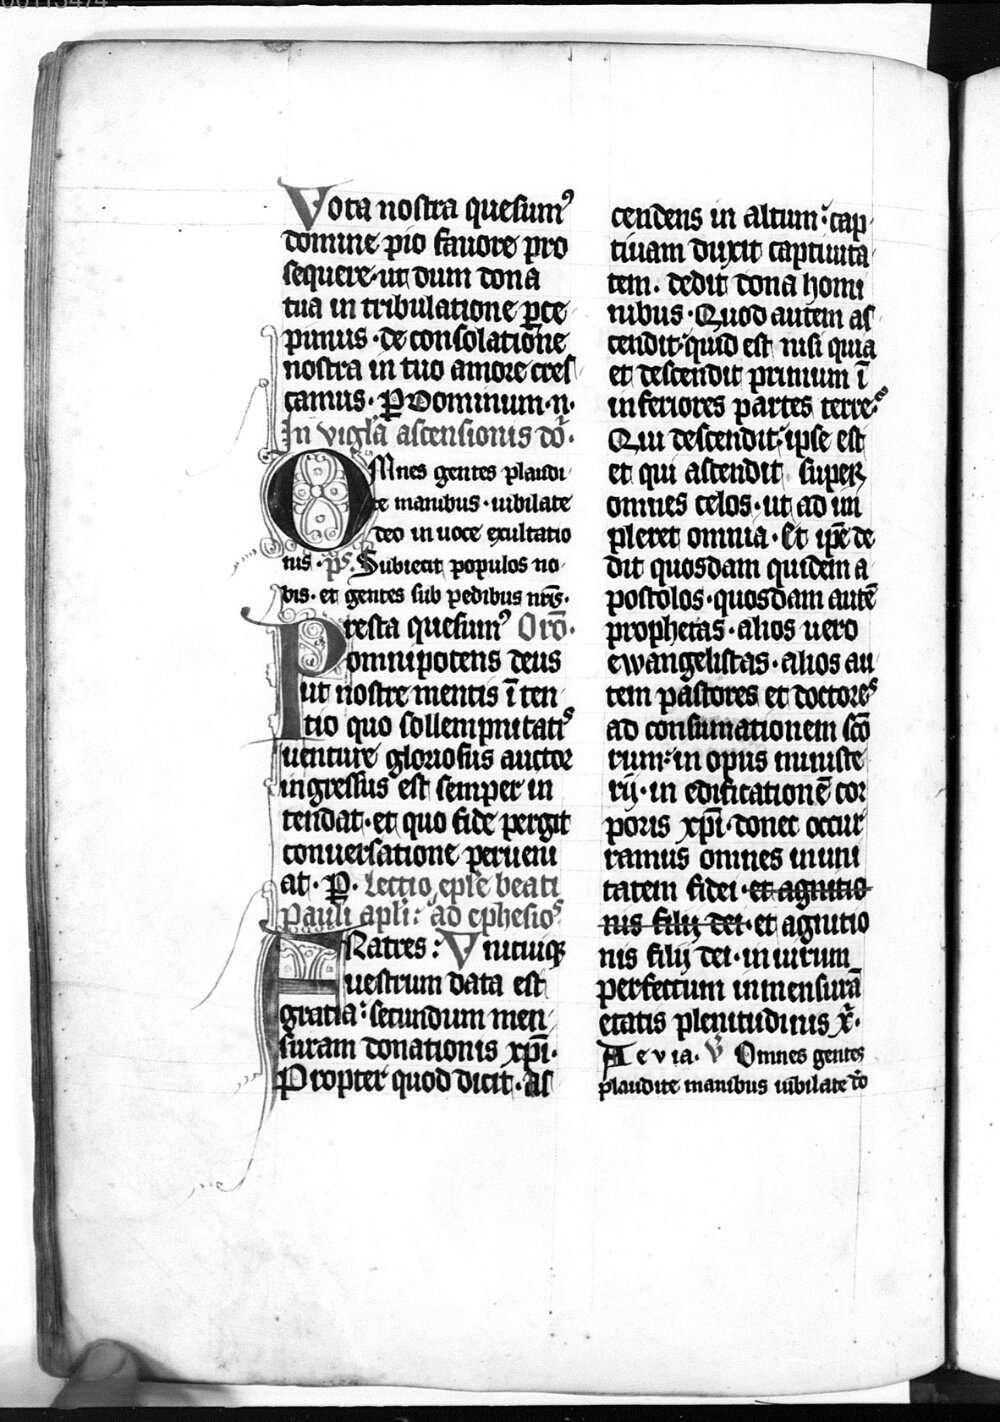 Vota nostra quesumꝰ
domine pio fauore pro
sequere·ut dum dona
tua in tribulatione ꝑce
pimus·de consolatione
nostra in tuo amore cres
camus·ꝑ Dominum·n·
In vigl̄a ascensionis dō·
OMnes gentes plaudi
te manibus·iubilate
deo in uoce exultatio
nis·p̄s. Subiecit populos no
bis·et gentes sub pedibus nr̄is·
Presta quesumꝰ Orō·
omnipotens deus
ut nostre mentis īten
tio quo sollempnitatis
uenture gloriosus auctor
ingressus est semper in
tendat·et quo fide pergit
conuersatione perueni
at·P. Lectio ep̄le beati
Pauli apl̄i: ad ephesios
FRatres: Vnicuiqꝫ
uestrum data est
gratia: secundum men
suram donationis xp̄i·
Propter quod dicit·as
cendens in altum: cap
tiuam duxit captiuita
tem·dedit dona homi
nibus·Quod autem as
cendit: quid est nisi quia
et descendit primum ī
inferiores partes terre·
Qui descendit: ipse est
et qui ascendit super
omnes celos·ut ad im
pleret omnia·Et ip̄e de
dit quosdam quidem a
postolos·quosdam autē
prophetas·alios uero
ewangelistas·alios au
tem pastores et doctores
ad consumationem scō
rum: in opus ministe
rij·in edificationē cor
poris xp̄i·donec occur
ramus omnes in uni
tatem fidei·et agnitio
nis filij dei·et agnitio
nis filij dei·in uirum
perfectum in mensurā
etatis plenitudinis x̄·
Aeuia. V Omnes gentes
plaudite manibus iubilate dō